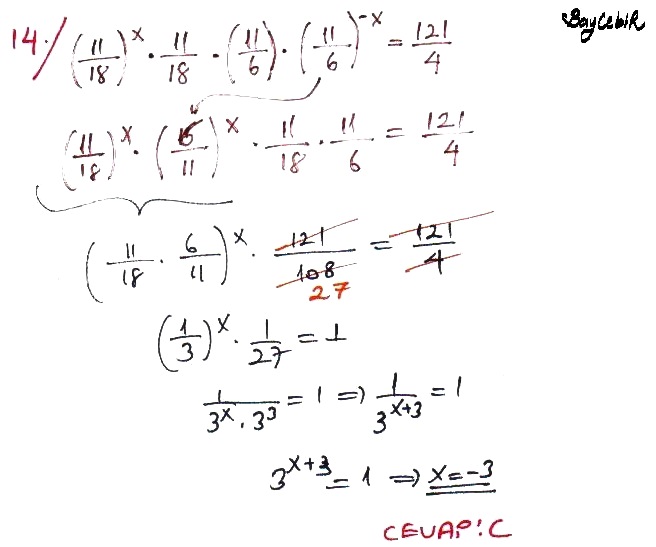 BayCebiR
14·/ (11/18)^x · 11/18 · (11/6) · (11/6)^-x = 121/4
(11/18)^x · (6/11)^x · 11/18 · 11/6 = 121/4
(11/18 · 6/11)^x · 121/108 = 121/4
27
(1/3)^x · 1/27 = 1
1/(3^x · 3^3) = 1 ⇒ 1/3^(x+3) = 1
3^(x+3) = 1 ⇒ x = -3
CEVAP: C